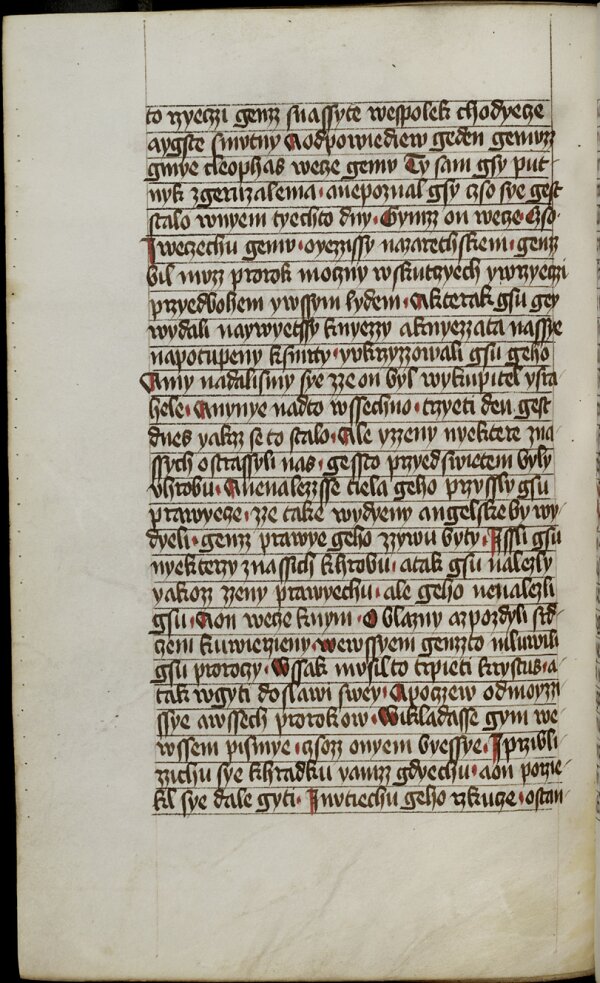 to rzyeczi genz snassyte wespolek chodyecze
aygste smutny Aodpowiediew geden gemuzz
gmye cleophas wecze gemu Ty sam gsy put-
nyk zgeruzalema · anepoznal gsy czso sye gest
stalo wnyem tyechto dny · Gymzz on wecze · Czso ·
Iweczechu gemu · oyezzissy nazarethskem · genz
bil muzz prorok moczny wskutczyech ywrzyeczi
przyedbohem ywssym lydem · Akterak gsu gey
wydali naywyetssy knyezzy aknyezzata nassye
napotupeny ksmrty · yvkrzyzzowali gsu geho
Amy nadalismy sye zze on byl wykupitel ysra
hele · Anynye nadto wssechno · trzyeti den gest
dnes yakz se to stalo · Ale yzzeny nyektere zna-
ssych ostrassyli nas · gessto przyed swietem byly
vhrobu · Anenalezsse tiela geho przyssly gsu
prawyecze · zze take wydyeny angelske by wy-
dyeli · genz prawye geho zzywu byty · Issli gsu
nyekterzy znassich khrobu · atak gsu nalezly
yakozz zzeny prawyechu · ale geho nenalezli
gsu · Aon wecze knym · O blazny azpozdyli srd-
czem kuwierzieny · wewssyem genzto mluwili
gsu proroczy · Wssak musil to trpieti krystus · a-
tak wgyti doslawi swey · Apoczew odmoyzzi-
ssye awssech prorokow · Wikladasse gym we-
wssem pismye · czsozz onyem byessye · Iprzibli-
zzichu sye khradku yamzz gdyechu · aon porzie-
kl sye dale gyti · Inutiechu geho rzkucze · ostan-